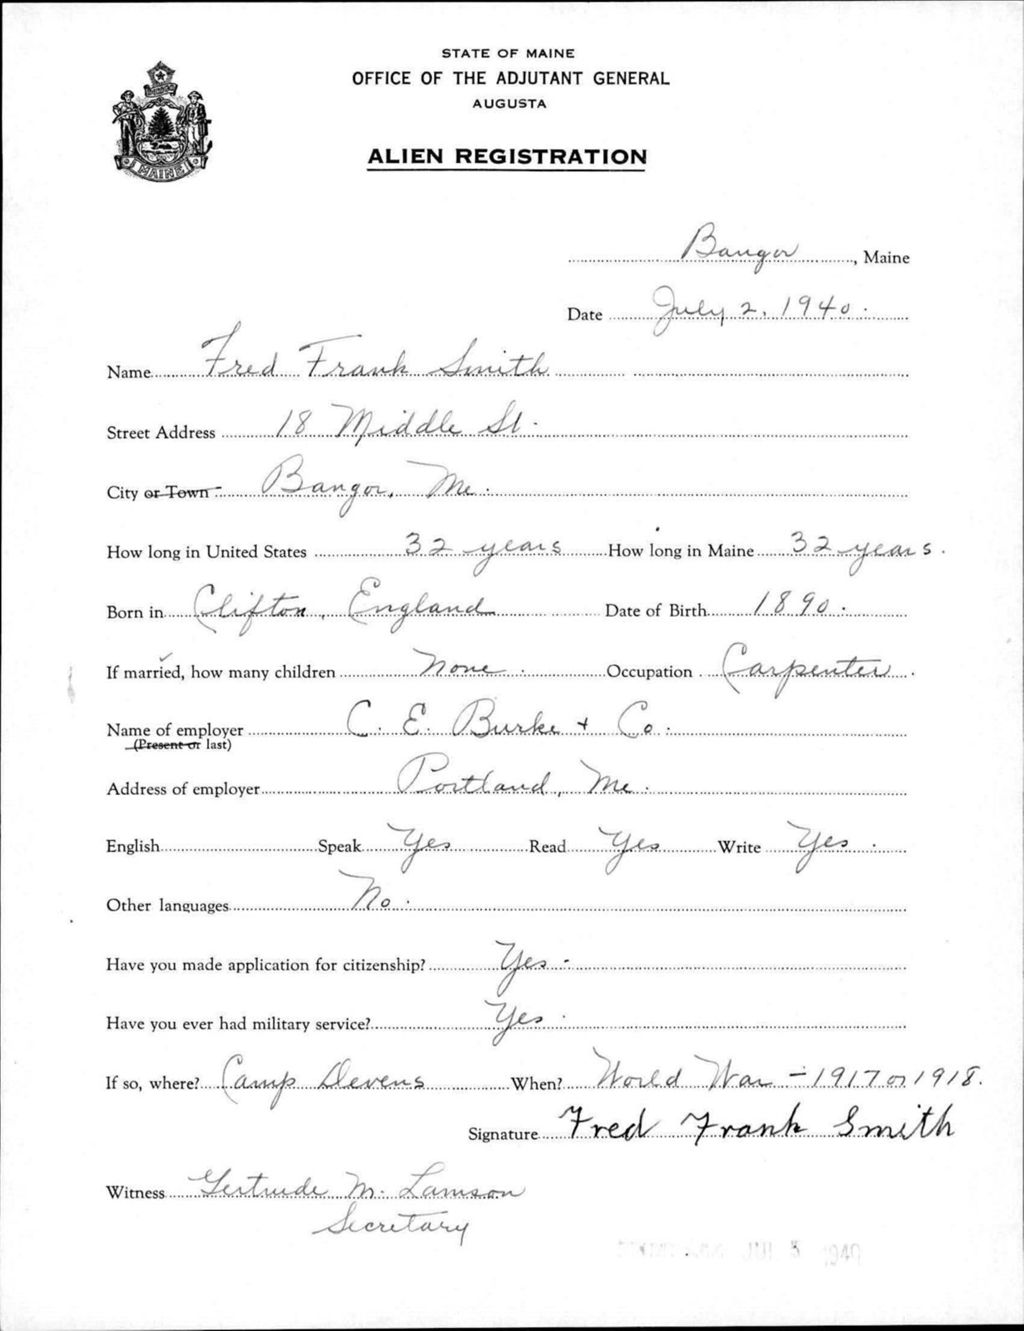 STATE OF MAINE
OFFICE OF THE ADJUTANT GENERAL
AUGUSTA
ALIEN REGISTRATION
MAINE
Bangor, Maine
Date July 2, 1940.
Name Fred Frank Smith
Street Address 18 Middle St.
City or Town Bangor, Me.
How long in United States 32 years How long in Maine 32 years.
Born in Clifton, England Date of Birth 1890.
If married, how many children None. Occupation Carpenter.
Name of employer C. E. Burke + Co.
(Present or last)
Address of employer Portland, Me.
English Speak Yes Read Yes Write Yes.
Other languages No.
Have you made application for citizenship? Yes.
Have you ever had military service? Yes.
If so, where? Camp Devens When? World War - 1917 or 1918.
Signature Fred Frank Smith
Witness Gertrude M. Lamson
Secretary
JUL 3 1940